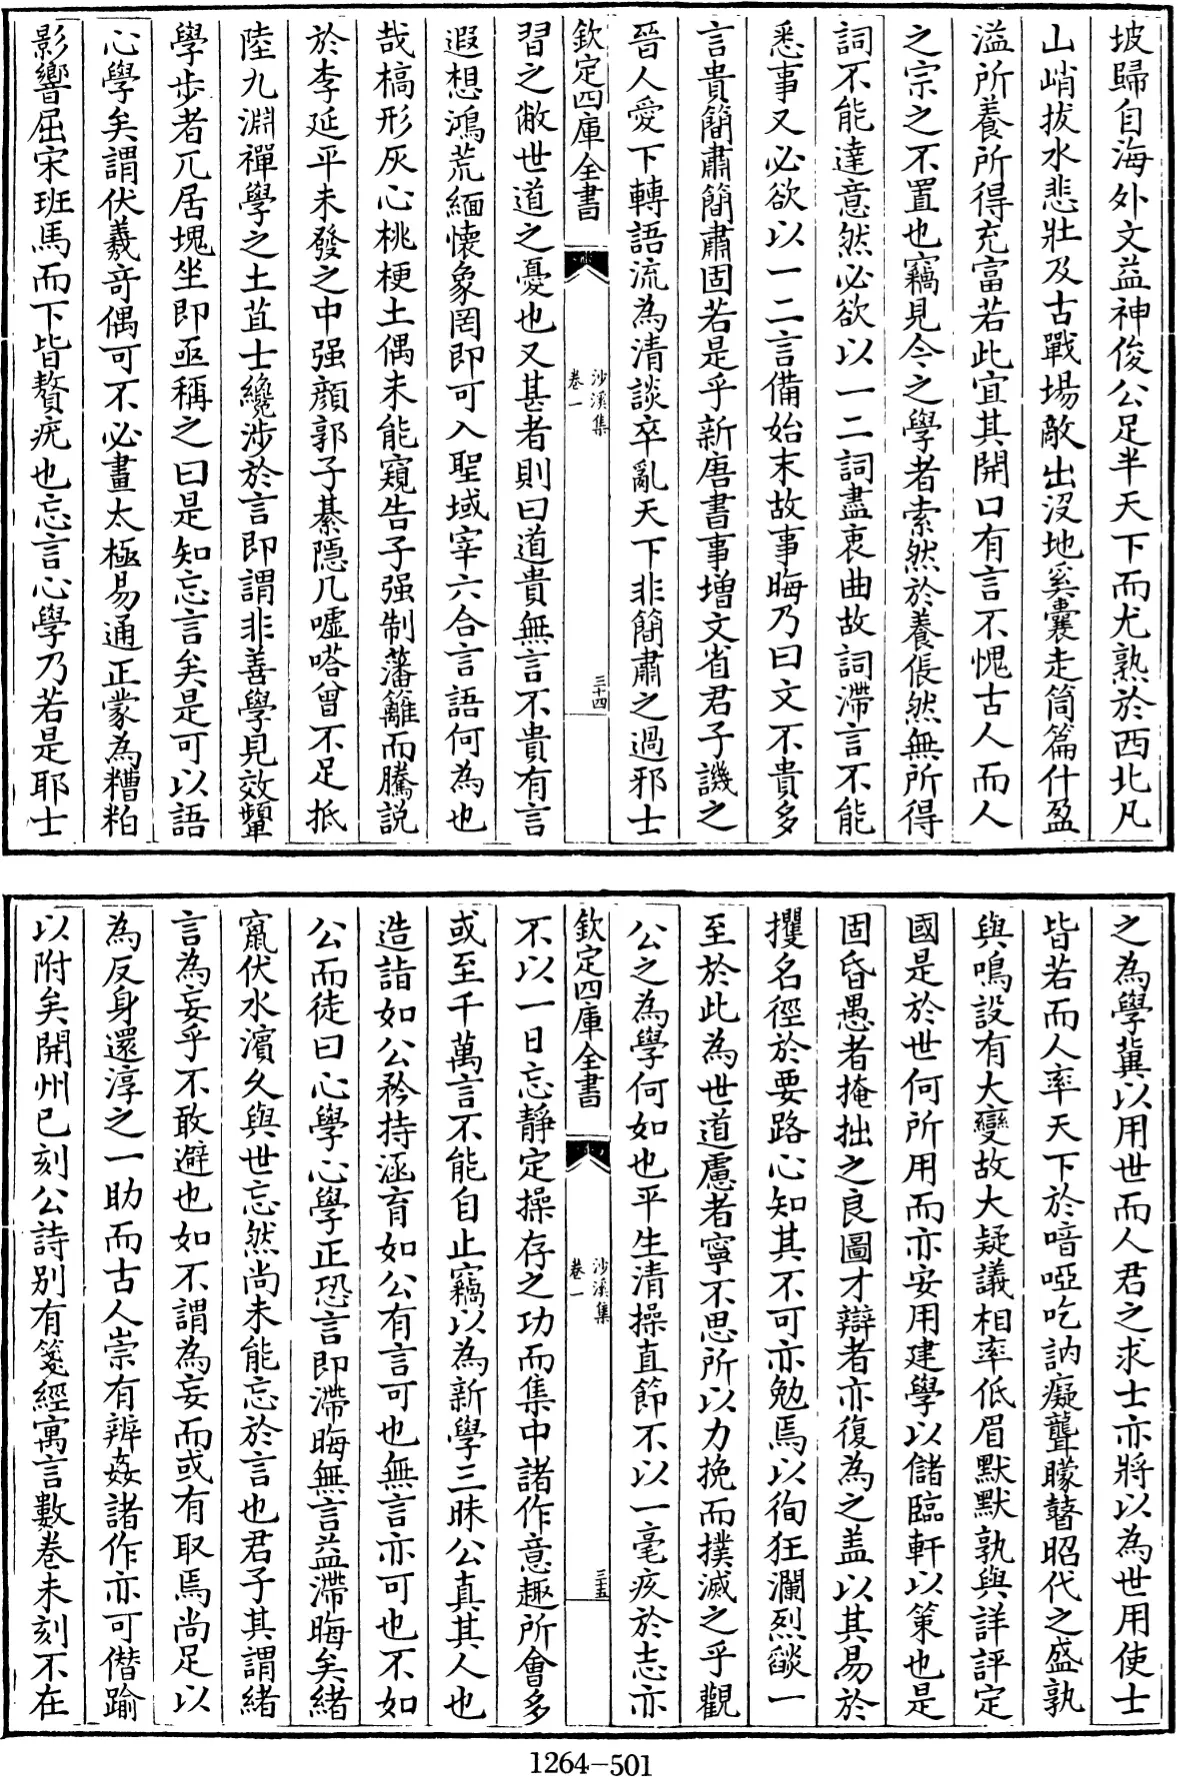 坡歸自海外文益神俊公足半天下而尤熟於西北凡
山峭拔水悲壯及古戰場敵出沒地奚囊走筒篇什盈
溢所養所得充富若此宜其開口有言不愧古人而人
之宗之不置也竊見今之學者索然於養倀然無所得
詞不能達意然必欲以一二詞盡衷曲故詞滯言不能
悉事又必欲以一二言備始末故事晦乃曰文不貴多
言貴簡肅簡肅固若是乎新唐書事增文省君子譏之
晉人愛下轉語流為清談卒亂天下非簡肅之過邪士
欽定四庫全書
沙溪集
卷一
三十四
習之敝世道之憂也又甚者則曰道貴無言不貴有言
遐想鴻荒緬懷象罔即可入聖域宰六合言語何為也
哉槁形灰心桃梗土偶未能窺告子强制藩籬而騰說
於李延平未發之中强顔郭子綦隱几嘘嗒曾不足抵
陸九淵禪學之土苴士纔涉於言即謂非善學見效顰
學步者兀居塊坐即亟稱之曰是知忘言矣是可以語
心學矣謂伏羲奇偶可不必畫太極易通正蒙為糟粕
影響屈宋班馬而下皆贅疣也忘言心學乃若是耶士
之為學冀以用世而人君之求士亦將以為世用使士
皆若而人率天下於喑啞吃訥癡聾矇瞽昭代之盛孰
與鳴設有大變故大疑議相率低眉默默孰與詳評定
國是於世何所用而亦安用建學以儲臨軒以策也是
固昏愚者掩拙之良圖才辯者亦復為之盖以其易於
攫名徑於要路心知其不可亦勉焉以徇狂瀾烈燄一
至於此為世道慮者寧不思所以力挽而撲滅之乎觀
公之為學何如也平生清操直節不以一毫疚於志亦
欽定四庫全書
沙溪集
卷一
三十五
不以一日忘靜定操存之功而集中諸作意趣所會多
或至千萬言不能自止竊以為新學三昧公真其人也
造詣如公矜持涵育如公有言可也無言亦可也不如
公而徒曰心學心學正恐言即滯晦無言益滯晦矣緒
竄伏水濱久與世忘然尚未能忘於言也君子其謂緒
言為妄乎不敢避也如不謂為妄而或有取焉尚足以
為反身還淳之一助而古人崇有辨姦諸作亦可僭踰
以附矣開州已刻公詩别有箋經寓言數卷未刻不在
1264-501